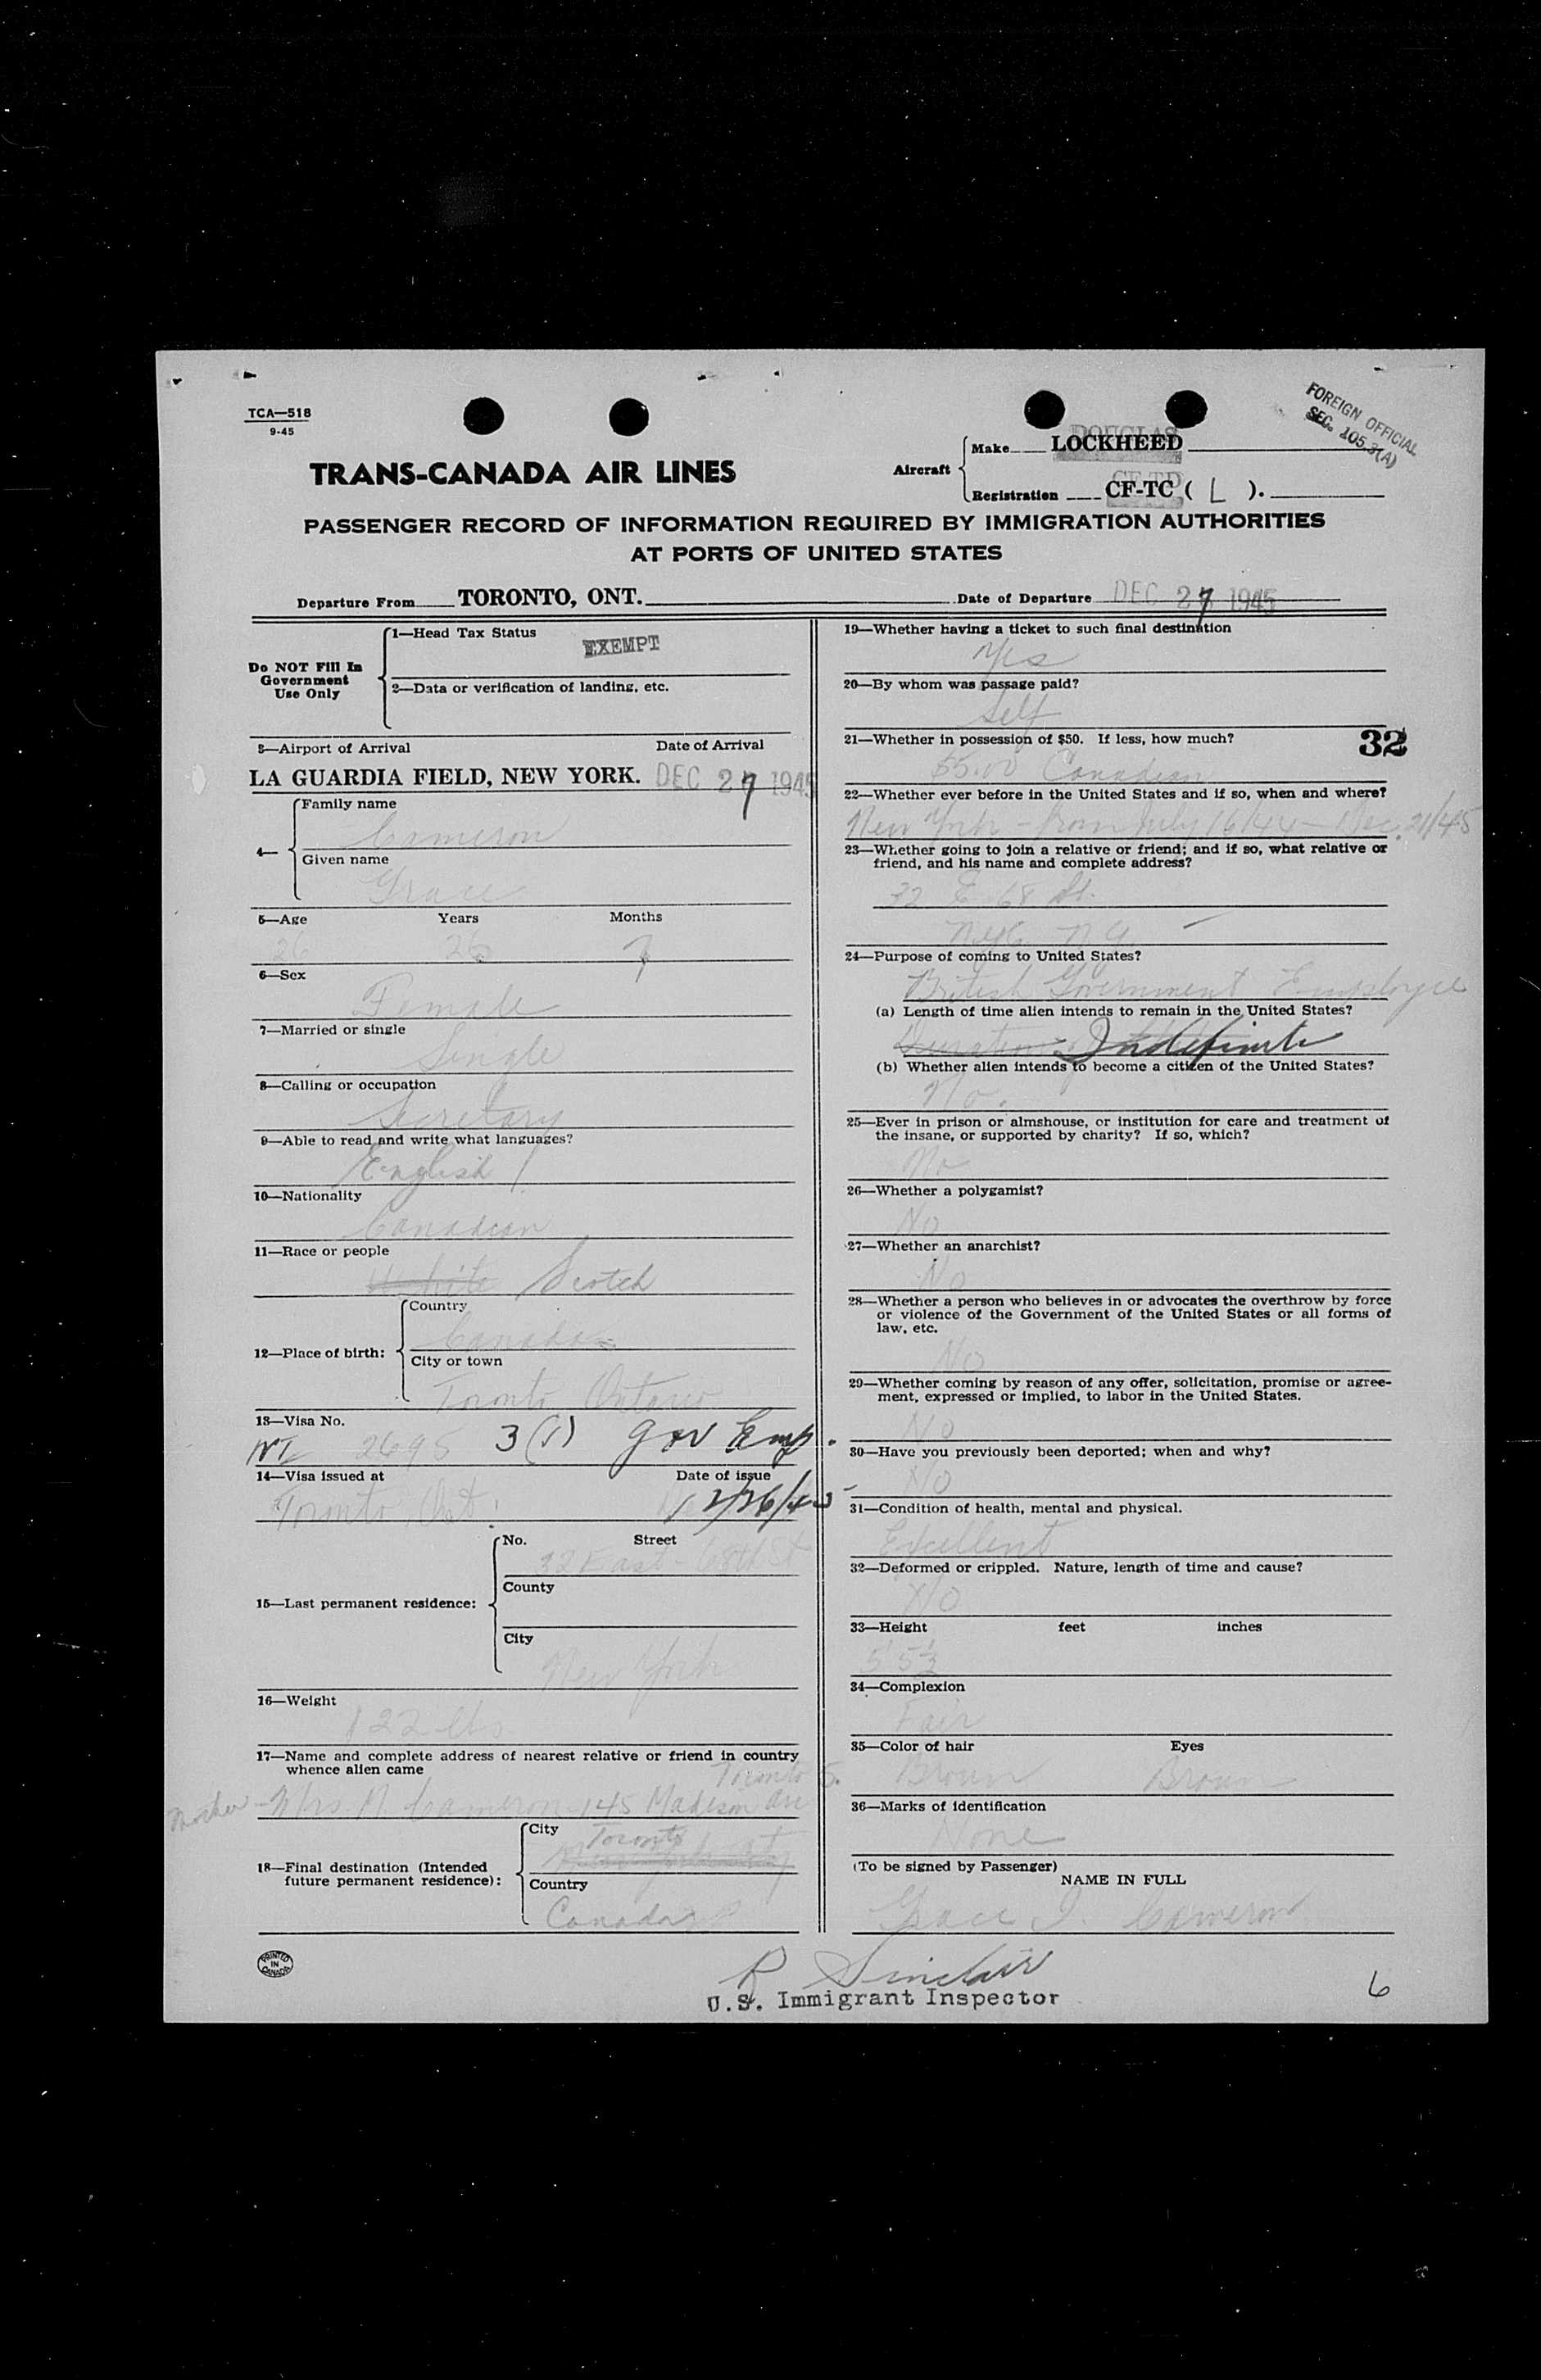 TCA—518
9-45
FOREIGN OFFICIAL
SEC. 105.3(A)
TRANS-CANADA AIR LINES
Aircraft
Make DOUGLAS LOCKHEED
Registration CF-TD CF-TC ( L ).
PASSENGER RECORD OF INFORMATION REQUIRED BY IMMIGRATION AUTHORITIES
AT PORTS OF UNITED STATES
Departure From TORONTO, ONT. Date of Departure DEC 27 1945
Do NOT Fill In
Government
Use Only
1—Head Tax Status EXEMPT
2—Data or verification of landing, etc.
3—Airport of Arrival Date of Arrival
LA GUARDIA FIELD, NEW YORK. DEC 27 1945
4—
Family name
Cameron
Given name
Grace
5—Age Years Months
26 26 7
6—Sex
Female
7—Married or single
Single
8—Calling or occupation
Secretary
9—Able to read and write what languages?
English
10—Nationality
Canadian
11—Race or people
White Scotch
12—Place of birth:
Country
Canada
City or town
Toronto Ontario
13—Visa No.
2695 3(1) Gov Emp.
14—Visa issued at Date of issue
Toronto, Ont. 12/26/45
15—Last permanent residence:
No. Street
32 East 68th St
County
City
New York
16—Weight
122 lbs
17—Name and complete address of nearest relative or friend in country
whence alien came
Toronto 5.
Mother - Mrs. N. Cameron 145 Madison Ave
18—Final destination (Intended
future permanent residence):
City Toronto
Country
Canada
PRINTED
IN
CANADA
19—Whether having a ticket to such final destination
Yes
20—By whom was passage paid?
Self
21—Whether in possession of $50. If less, how much? 32
55.00 Canadian
22—Whether ever before in the United States and if so, when and where?
New York - from July 16/44 - Dec. 21/45
23—Whether going to join a relative or friend; and if so, what relative or
friend, and his name and complete address?
32 E 68 St.
NYC. N.Y.
24—Purpose of coming to United States?
British Government Employee
(a) Length of time alien intends to remain in the United States?
Duration Indefinite
(b) Whether alien intends to become a citizen of the United States?
No.
25—Ever in prison or almshouse, or institution for care and treatment of
the insane, or supported by charity? If so, which?
No
26—Whether a polygamist?
No
27—Whether an anarchist?
No
28—Whether a person who believes in or advocates the overthrow by force
or violence of the Government of the United States or all forms of
law, etc.
No
29—Whether coming by reason of any offer, solicitation, promise or agree-
ment, expressed or implied, to labor in the United States.
No
30—Have you previously been deported; when and why?
No
31—Condition of health, mental and physical.
Excellent
32—Deformed or crippled. Nature, length of time and cause?
No
33—Height feet inches
5' 5½
34—Complexion
Fair
35—Color of hair Eyes
Brown Brown
36—Marks of identification
None
(To be signed by Passenger)
NAME IN FULL
Grace I. Cameron
R Sinclair
U.S. Immigrant Inspector
6